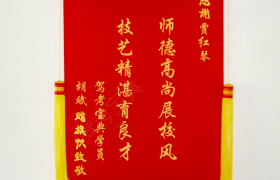 感谢贾红琴
师德高尚展校风
技艺精湛育良才
驾考宝典学员
胡斌赠旗帜致敬